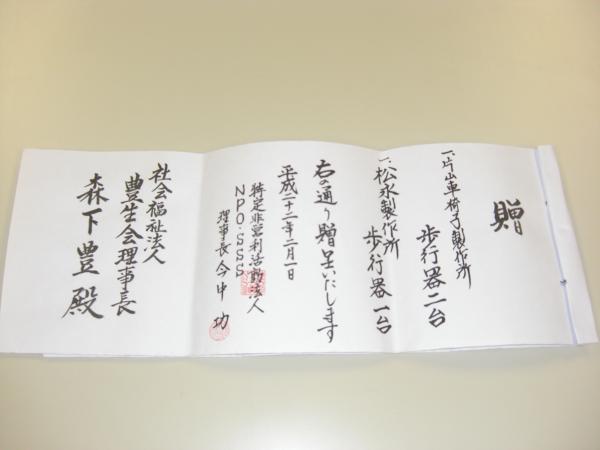 贈
一、片山車椅子製作所
歩行器二台
一、松永製作所
歩行器一台
右の通り贈呈いたします
平成二十二年二月一日
特定非営利活動法人
NPO・SSS
理事長 今中 功
社会福祉法人
豊生会理事長
森下豊殿